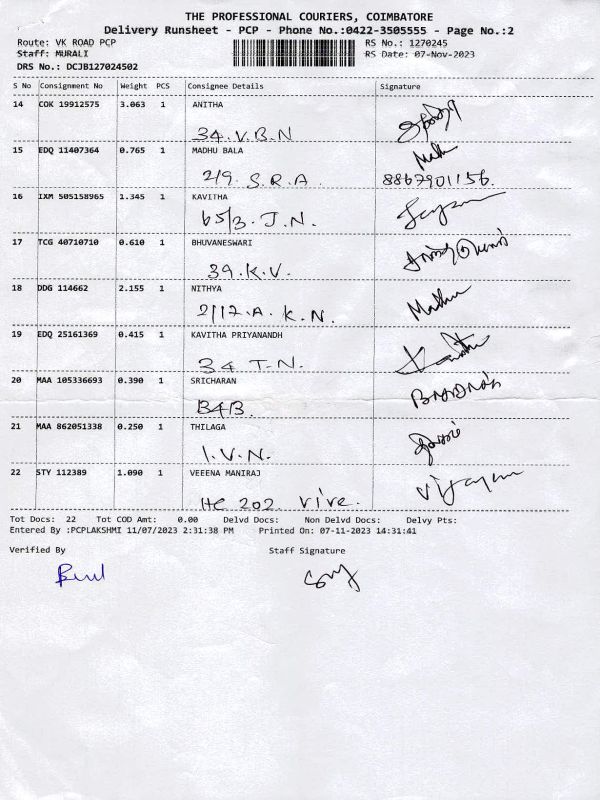 THE PROFESSIONAL COURIERS, COIMBATORE
Delivery Runsheet - PCP - Phone No.:0422-3505555 - Page No.:2
Route: VK ROAD PCP RS No.: 1270245
Staff: MURALI RS Date: 07-Nov-2023
DRS No.: DCJB127024502
S No Consignment No Weight PCS Consignee Details Signature
14 COK 19912575 3.063 1 ANITHA
34.V.B.N
15 EDQ 11407364 0.765 1 MADHU BALA
2/9. S.R.A. 8867901156.
16 IXM 505158965 1.345 1 KAVITHA
65/3. J.N.
17 TCG 40710710 0.610 1 BHUVANESWARI
39.K.V.
18 DDG 114662 2.155 1 NITHYA
2/17.A. K.N.
19 EDQ 25161369 0.415 1 KAVITHA PRIYANANDH
34 T.N.
20 MAA 105336693 0.390 1 SRICHARAN
B4B.
21 MAA 862051338 0.250 1 THILAGA
1.V.N.
22 STY 112389 1.090 1 VEEENA MANIRAJ
HC 202. vive.
Tot Docs: 22 Tot COD Amt: 0.00 Delvd Docs: Non Delvd Docs: Delvy Pts:
Entered By :PCPLAKSHMI 11/07/2023 2:31:38 PM Printed On: 07-11-2023 14:31:41
Verified By Staff Signature